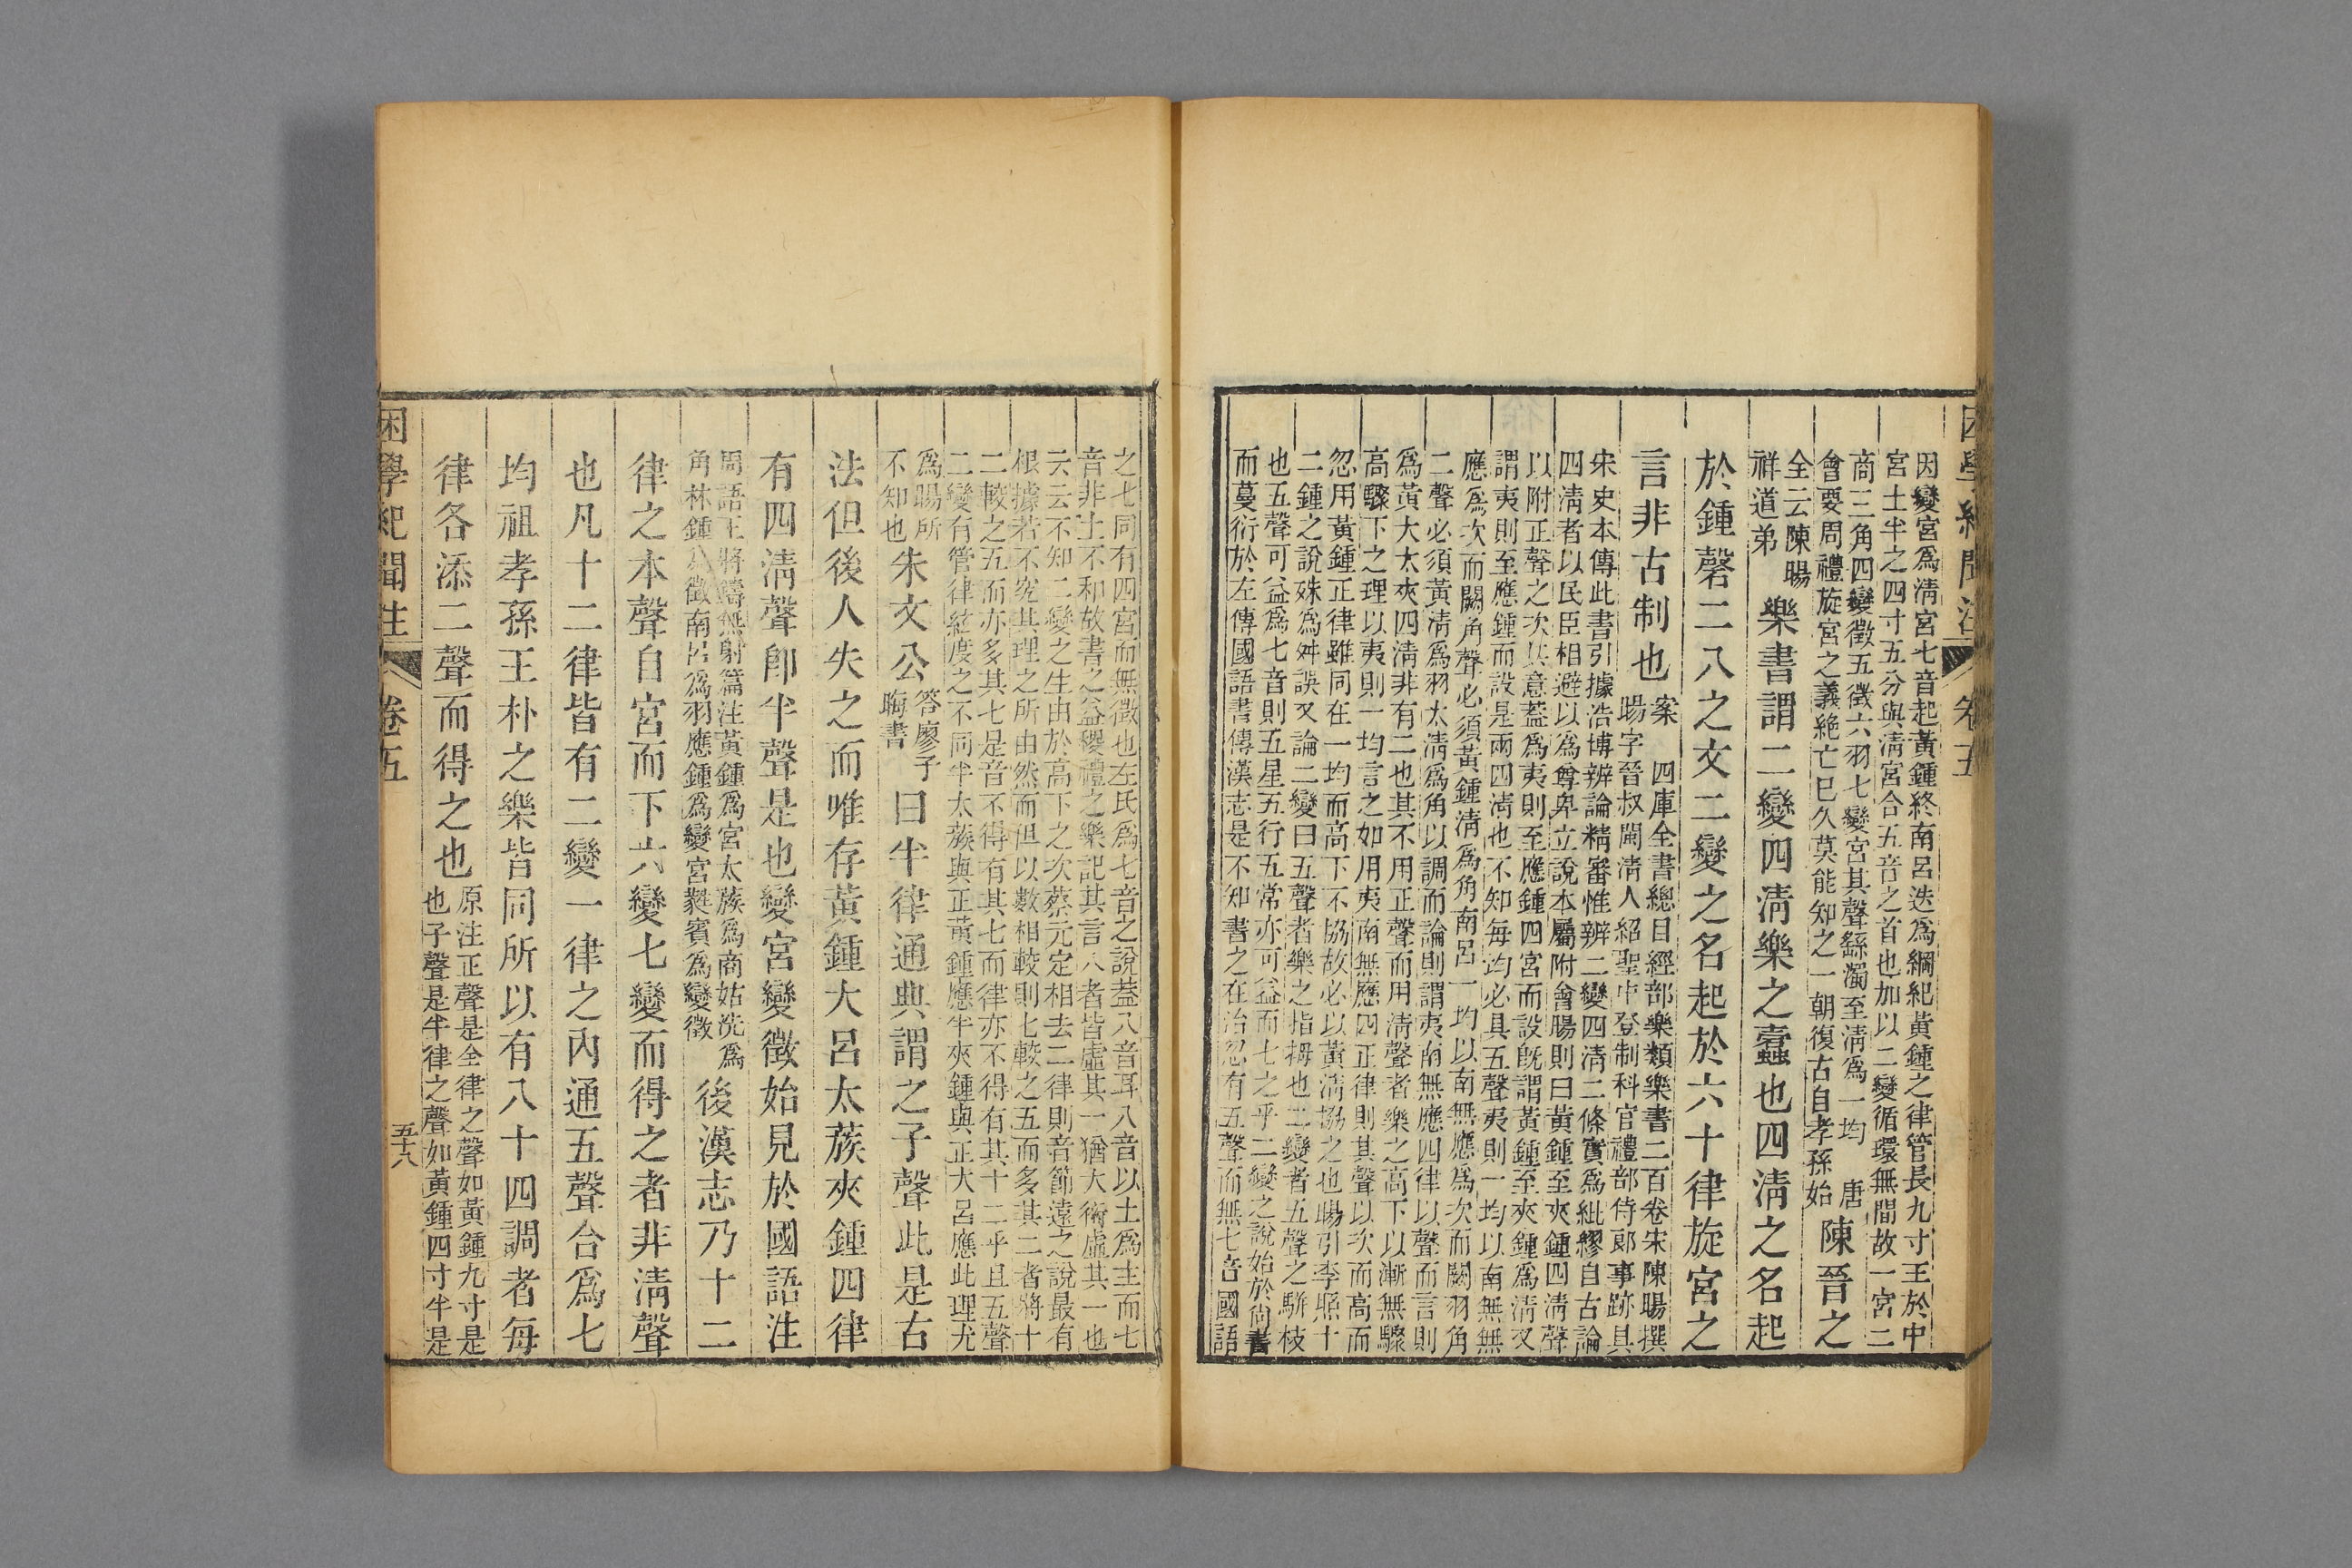 困學紀聞注 卷五
因變宮爲淸宮七音起黃鍾終南呂迭爲綱紀黃鍾之律管長九寸王於中
宮土半之四寸五分與淸宮合五音之首也加以二變循環無間故一宮二
商三角四變徵五徵六羽七變宮其聲繇濁至淸爲一均 唐
會要周禮旋宮之義絶亡已久莫能知之一朝復古自孝孫始
陳晉之
全云陳暘
祥道弟
樂書謂二變四淸樂之蠹也四淸之名起
於鍾磬二八之文二變之名起於六十律旋宮之
言非古制也
案 四庫全書總目經部樂類樂書二百卷宋陳暘撰
暘字晉叔閩淸人紹聖中登制科官禮部侍郞事跡具
宋史本傳此書引據浩博辨論精審惟辨二變四淸二條實爲紕繆自古論
四淸者以民臣相避以爲尊卑立說本屬附會暘則曰黃鍾至夾鍾四淸聲
以附正聲之次其意蓋爲夷則至應鍾四宮而設旣謂黃鍾至夾鍾爲淸又
謂夷則至應鍾而設是兩四淸也不知每均必具五聲夷則一均以南無無
應爲次而闕角聲必須黃鍾淸爲角南呂一均以南無應爲次而闕羽角
二聲必須黃淸爲羽太淸爲角以調而論則謂夷南無應四律以聲而言則
爲黃大太夾四淸非有二也其不用正聲而用淸聲者樂之高下以漸無驟
高驟下之理以夷則一均言之如用夷南無應四正律則其聲以次而高而
忽用黃鍾正律雖同在一均而高下不協故必以黃淸協之也暘引李照十
二鍾之說殊爲舛誤又論二變曰五聲者樂之指拇也二變者五聲之駢枝
也五聲可益爲七音則五星五行五常亦可益而七之乎二變之說始於尙書
而蔓衍於左傳國語書傳漢志是不知書之在治忽有五聲而無七音國語
之七同有四宮而無徵也左氏爲七音之說蓋八音耳八音以土爲主而七
音非土不和故書之益稷禮之樂記其言八者皆虛其一猶大衍虛其一也
云云不知二變之生由於高下之次蔡元定相去二律則音節遠之說最有
根據若不究其理之所由然而但以數相較則七較之五而多其二者將十
二較之五而亦多其七是音不得有其七而律亦不得有其十二乎且五聲
二變有管律絃度之不同半太蔟與正黃鍾應半夾鍾與正大呂應此理尤
爲暘所
不知也
朱文公
答廖子
晦書
曰半律通典謂之子聲此是古
法但後人失之而唯存黃鍾大呂太蔟夾鍾四律
有四淸聲卽半聲是也變宮變徵始見於國語注
周語王將鑄無射篇注黃鍾爲宮太蔟爲商姑洗爲
角林鍾爲徵南呂爲羽應鍾爲變宮蕤賓爲變徵
後漢志乃十二
律之本聲自宮而下六變七變而得之者非淸聲
也凡十二律皆有二變一律之內通五聲合爲七
均祖孝孫王朴之樂皆同所以有八十四調者每
律各添二聲而得之也
原注正聲是全律之聲如黃鍾九寸是
也子聲是半律之聲如黃鍾四寸半是
困學紀聞注 卷五 五十八